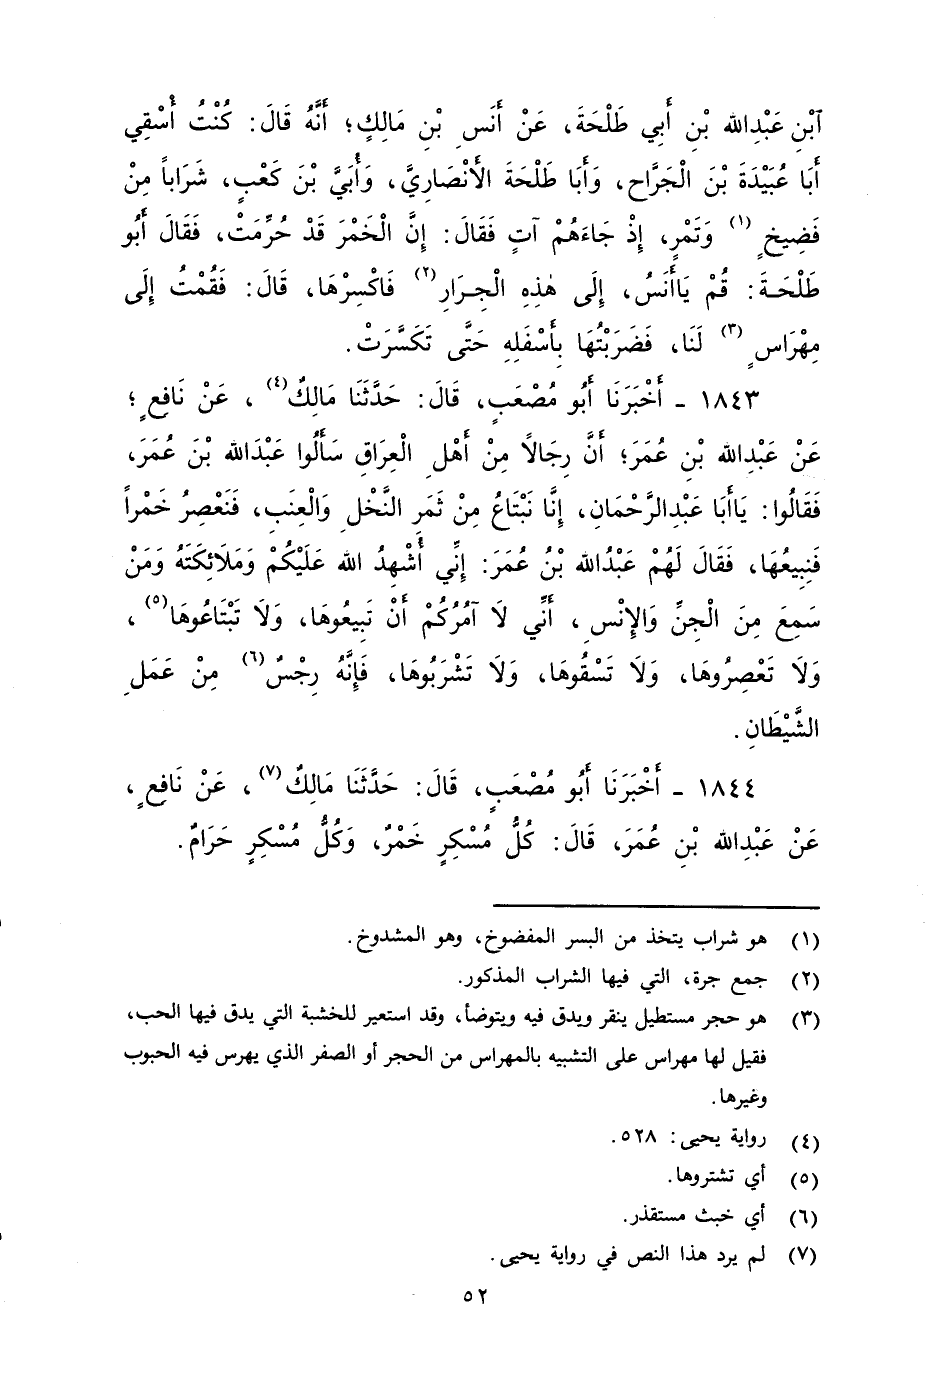 آبْنِ عَبْدِالله بْنِ أَبِي طَلْحَةَ، عَنْ أَنَسِ بْنِ مَالِكٍ؛ أَنَّهُ قَالَ: كُنْتُ أَسْقِي
أَبَا عُبَيْدَةَ بْنَ الْجَرَّاحِ، وَأَبَا طَلْحَةَ الأَنْصَارِيَّ، وَأُبَيَّ بْنَ كَعْبٍ، شَرَاباً مِنْ
فَضِيخٍ (١) وَتَمْرٍ، إِذْ جَاءَهُمْ آتٍ فَقَالَ: إِنَّ الْخَمْرَ قَدْ حُرِّمَتْ، فَقَالَ أَبُو
طَلْحَـةَ: قُمْ يَاأَنَسُ، إِلَى هٰذِهِ الْجِـرَارِ (٢) فَاكْسِرْهَا، قَالَ: فَقُمْتُ إِلَى
مِهْرَاسٍ (٣) لَنَا، فَضَرَبْتُهَا بِأَسْفَلِهِ حَتَّى تَكَسَّرَتْ.
١٨٤٣ - أَخْبَرَنَا أَبُو مُصْعَبٍ، قَالَ: حَدَّثَنَا مَالِكٌ (٤) ، عَنْ نَافِعٍ؛
عَنْ عَبْدِالله بْنِ عُمَرَ؛ أَنَّ رِجَالًا مِنْ أَهْلِ الْعِرَاقِ سَأَلُوا عَبْدَالله بْنَ عُمَرَ،
فَقَالُوا: يَاأَبَا عَبْدِالرَّحْمَانِ، إِنَّا نَبْتَاعُ مِنْ ثَمَرِ النَّخْلِ وَالْعِنَبِ، فَنَعْصِرُ خَمْراً
فَنَبِيعُهَا، فَقَالَ لَهُمْ عَبْدُالله بْنُ عُمَرَ: إِنِّي أُشْهِدُ الله عَلَيْكُمْ وَمَلَائِكَتَهُ وَمَنْ
سَمِعَ مِنَ الْجِنِّ وَالإِنْسِ، أَنِّي لَا آمُرُكُمْ أَنْ تَبِيعُوهَا، وَلَا تَبْتَاعُوهَا (٥) ،
وَلَا تَعْصِرُوهَا، وَلَا تَسْقُوهَا، وَلَا تَشْرَبُوهَا، فَإِنَّهُ رِجْسٌ (٦) مِنْ عَمَلِ
الشَّيْطَانِ.
١٨٤٤ - أَخْبَرَنَا أَبُو مُصْعَبٍ، قَالَ: حَدَّثَنَا مَالِكٌ (٧) ، عَنْ نَافِعٍ،
عَنْ عَبْدِالله بْنِ عُمَرَ، قَالَ: كُلُّ مُسْكِرٍ خَمْرٌ، وَكُلُّ مُسْكِرٍ حَرَامٌ.
(١) هو شراب يتخذ من البسر المفضوخ، وهو المشدوخ.
(٢) جمع جرة، التي فيها الشراب المذكور.
(٣) هو حجر مستطيل ينقر ويدق فيه ويتوضأ، وقد استعير للخشبة التي يدق فيها الحب،
فقيل لها مهراس على التشبيه بالمهراس من الحجر أو الصفر الذي يهرس فيه الحبوب
وغيرها.
(٤) رواية يحيى: ٥٢٨.
(٥) أي تشتروها.
(٦) أي خبث مستقذر.
(٧) لم يرد هذا النص في رواية يحيى.
٥٢